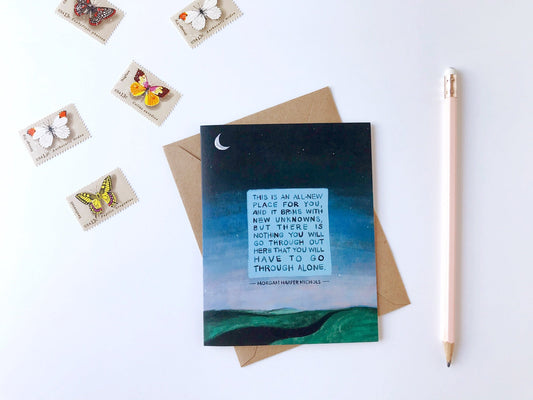 THIS IS AN ALL-NEW
PLACE FOR YOU,
AND IT BRIMS WITH
NEW UNKNOWNS,
BUT THERE IS
NOTHING YOU WILL
GO THROUGH OUT
HERE THAT YOU WILL
HAVE TO GO
THROUGH ALONE.
— MORGAN HARPER NICHOLS —